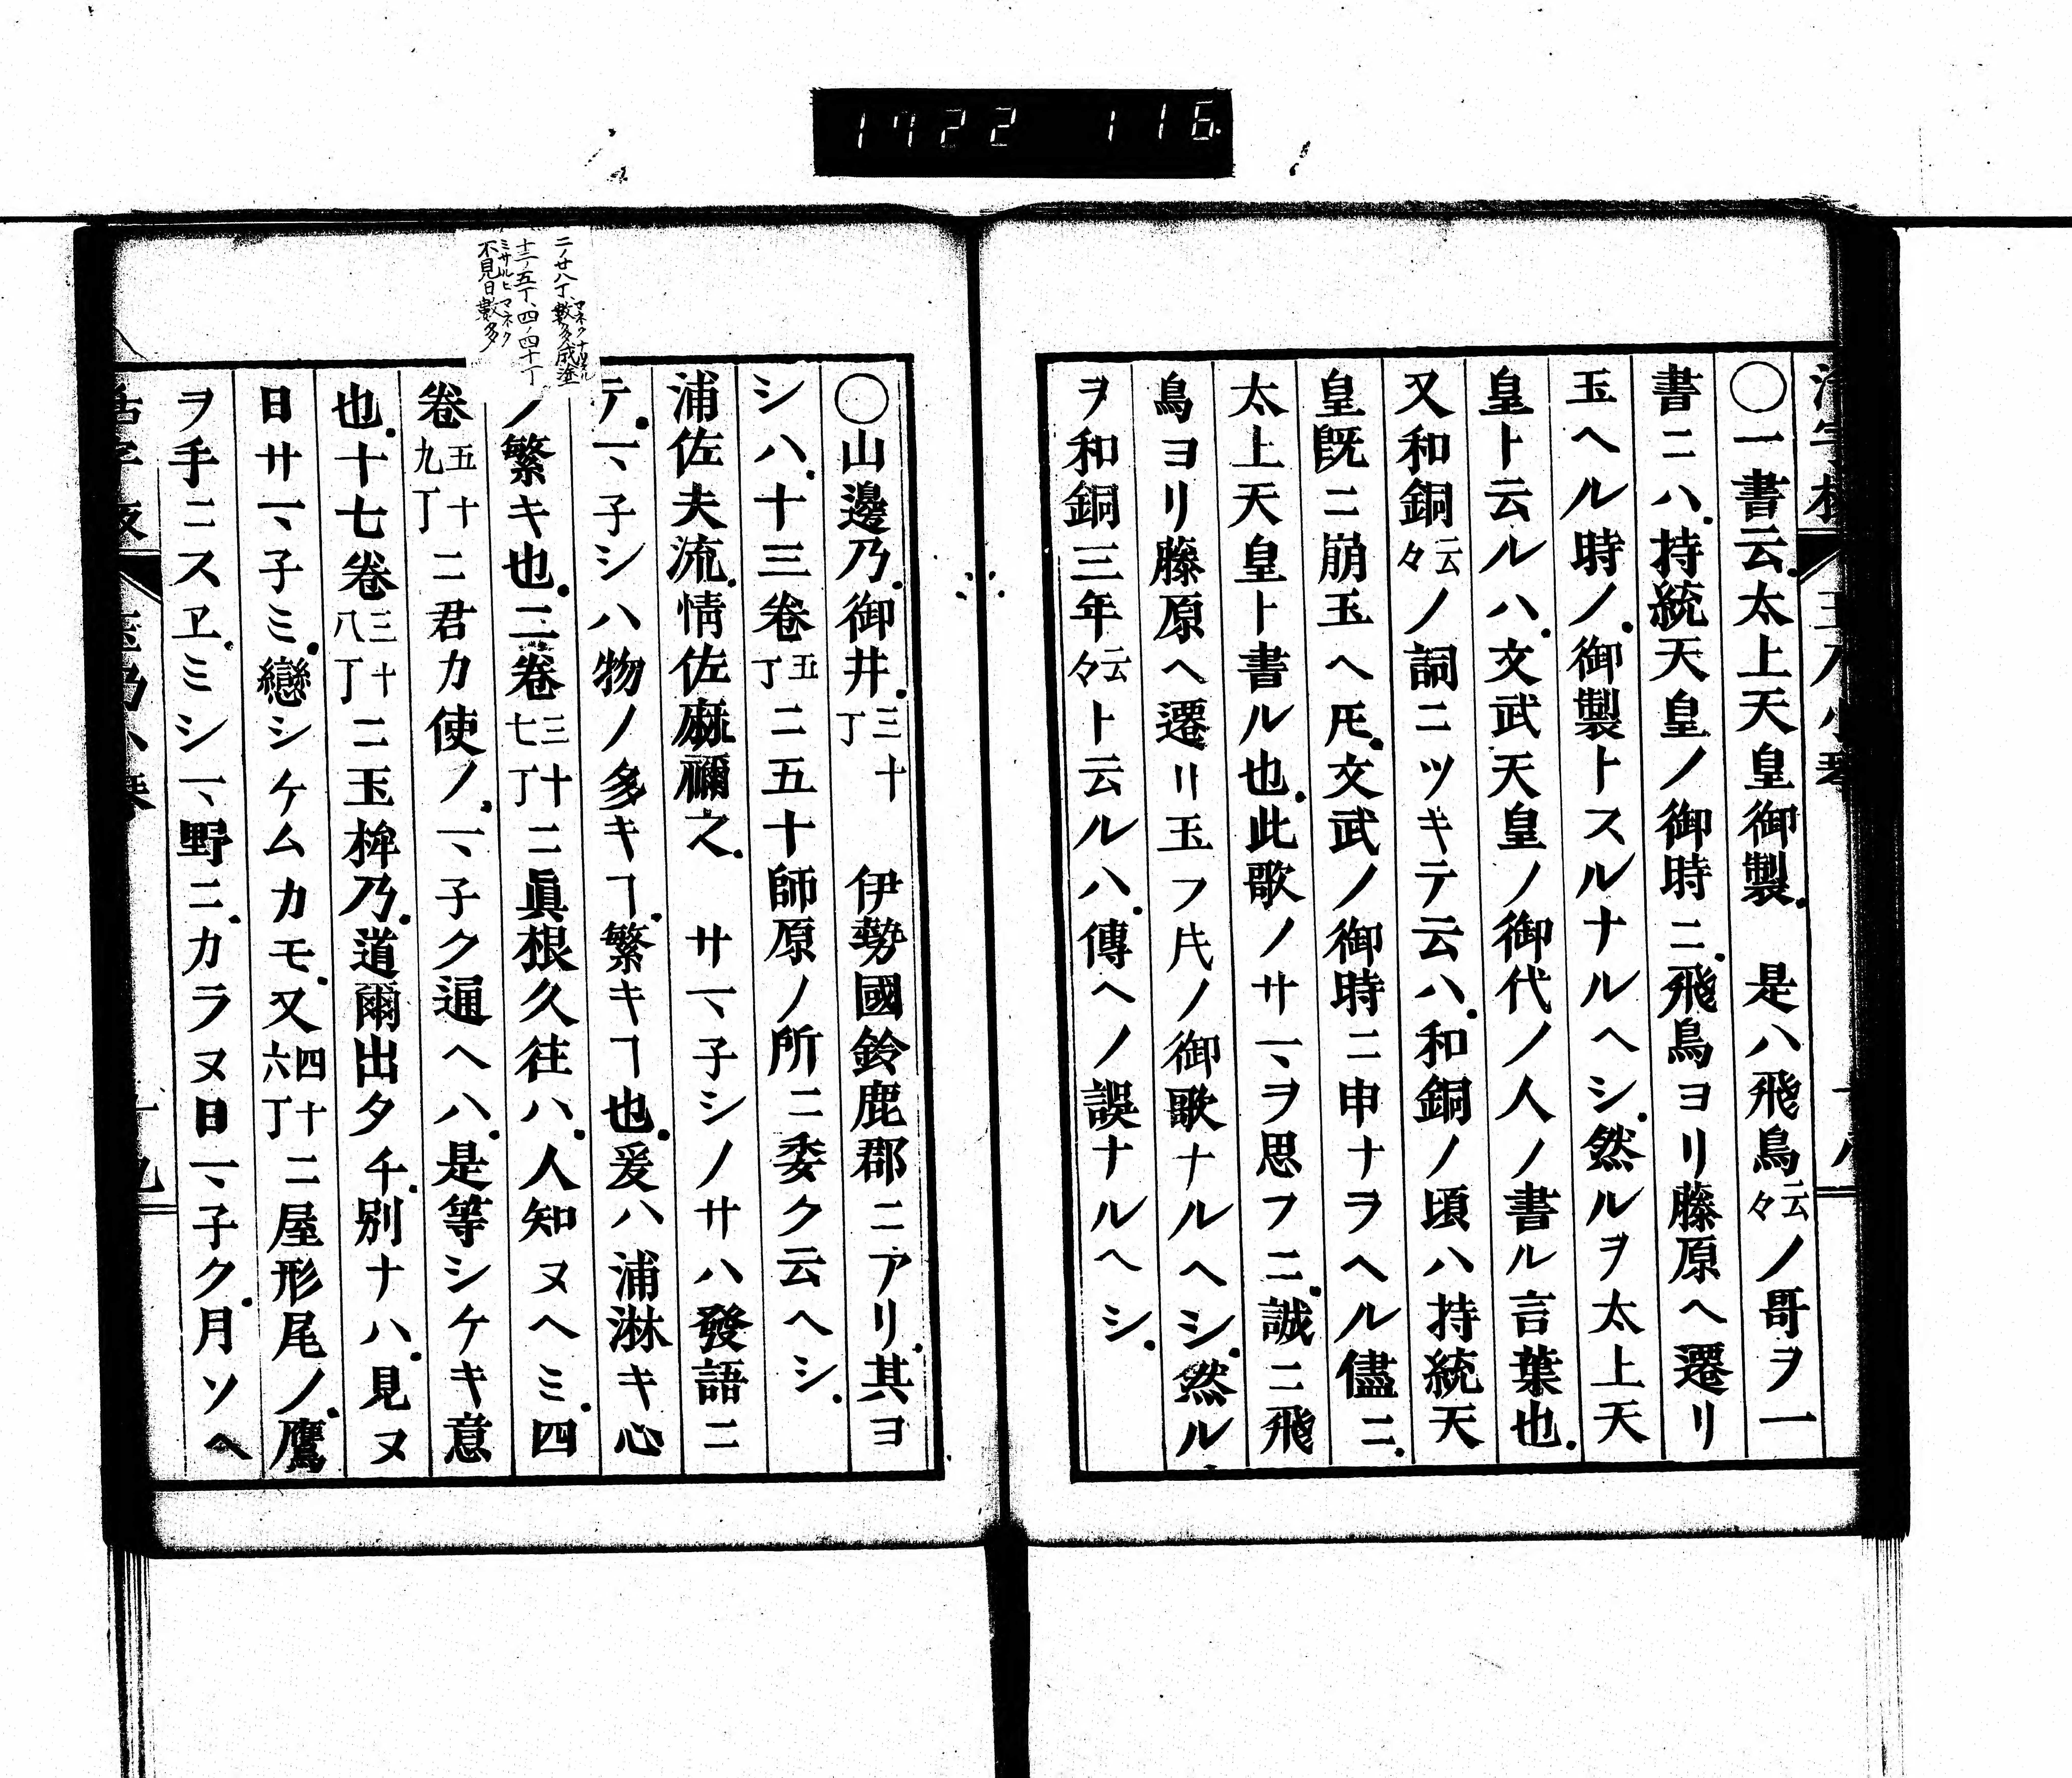 1722 116
〇一書云太上天皇御製 是ハ飛鳥云々ノ哥ヲ一
書ニハ持統天皇ノ御時ニ飛鳥ヨリ藤原ヘ遷リ
玉ヘル時ノ御製トスルナルヘシ然ルヲ太上天
皇ト云ルハ文武天皇ノ御代ノ人ノ書ル言葉也
又和銅云々ノ詞ニツキテ云ハ和銅ノ頃ハ持統天
皇既ニ崩玉ヘ𪜈文武ノ御時ニ申ナヲヘル儘ニ
太上天皇ト書ル也此歌ノサマヲ思フニ誠ニ飛
鳥ヨリ藤原ヘ遷リ玉フ𪜈ノ御歌ナルヘシ然ル
ヲ和銅三年云々ト云ルハ傳ヘノ誤ナルヘシ
二ノ廿八丁數多成塗
マネクナリヌル
十二ノ五丁、四ノ四十丁
ミサルヒマネク
不見日數多
〇山邊乃御井三十丁 伊勢國鈴鹿郡ニアリ其ヨ
シハ十三卷五丁ニ五十師原ノ所ニ委ク云ヘシ
浦佐夫流情佐麻禰之 サマ子シノサハ發語ニ
テマ子シハ物ノ多キヿ繁キヿ也爰ハ浦淋キ心
ノ繁キ也二卷三十七丁ニ眞根久往ハ人知ヌヘミ四
卷五十九丁ニ君カ使ノマ子ク通ヘハ是等シケキ意
也十七卷三十八丁ニ玉桙乃道爾出タチ別ナハ見ヌ
日サマ子ミ戀シケムカモ又四十六丁ニ屋形尾ノ鷹
ヲ手ニスヱミシマ野ニカラヌ日マ子ク月ソヘ